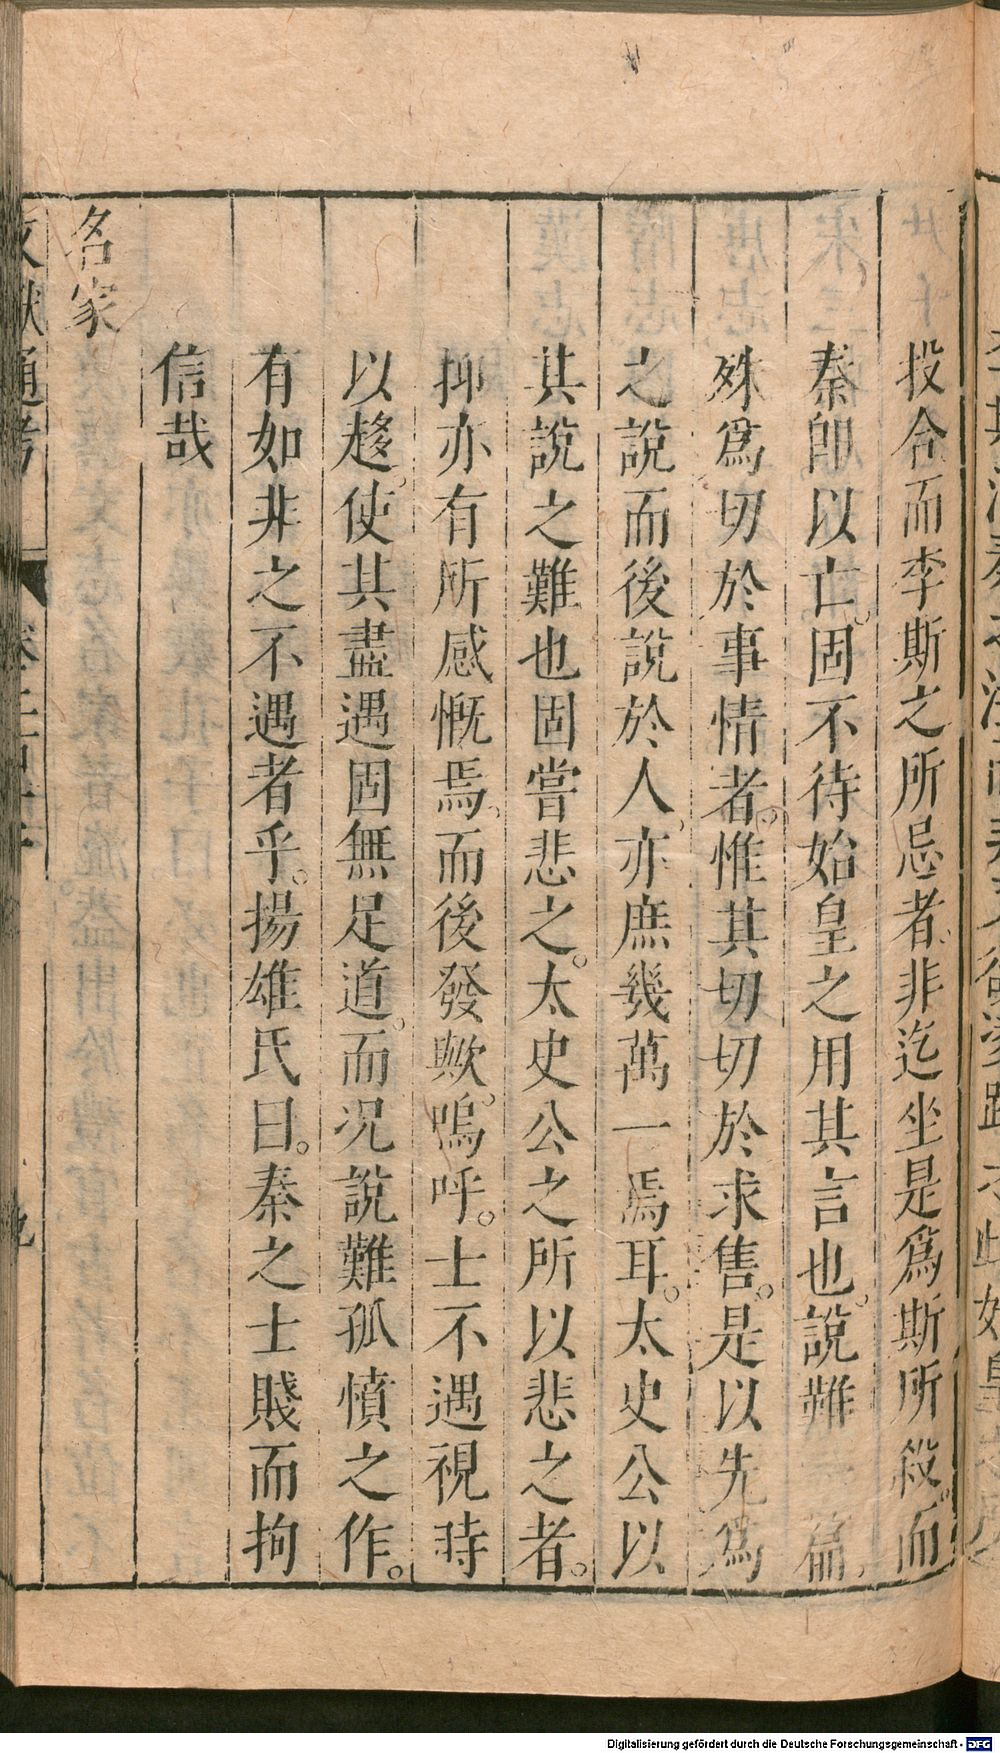 投合而李斯之所忌者、非迄坐是爲斯所殺。而
秦卽以亡。固不待始皇之用其言也。說難一篇、
殊爲切於事情者。惟其切切於求售。是以先爲
之說而後說於人、亦庶幾萬一焉耳。太史公以
其說之難也固嘗悲之。太史公之所以悲之者。
抑亦有所感慨焉、而後發歟。嗚呼。士不遇視時
以趍、使其盡遇固無足道。而况說難孤憤之作。
有如非之不遇者乎。揚雄氏曰。秦之士賤而拘
信哉
名家
文獻通考
Digitalisierung gefördert durch die Deutsche Forschungsgemeinschaft - DFG